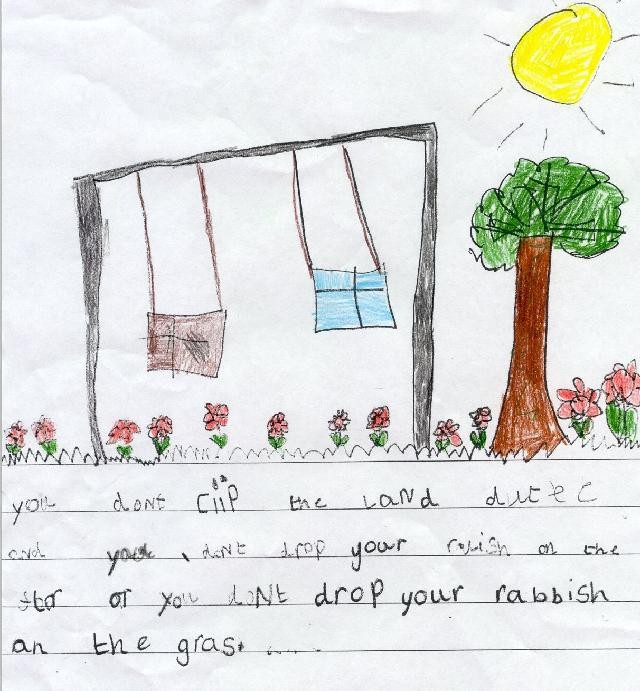 you dont Ciip the LaND dutec
and you dont drop your rabish on the
flor or you doNt drop your rabbish
an the gras.